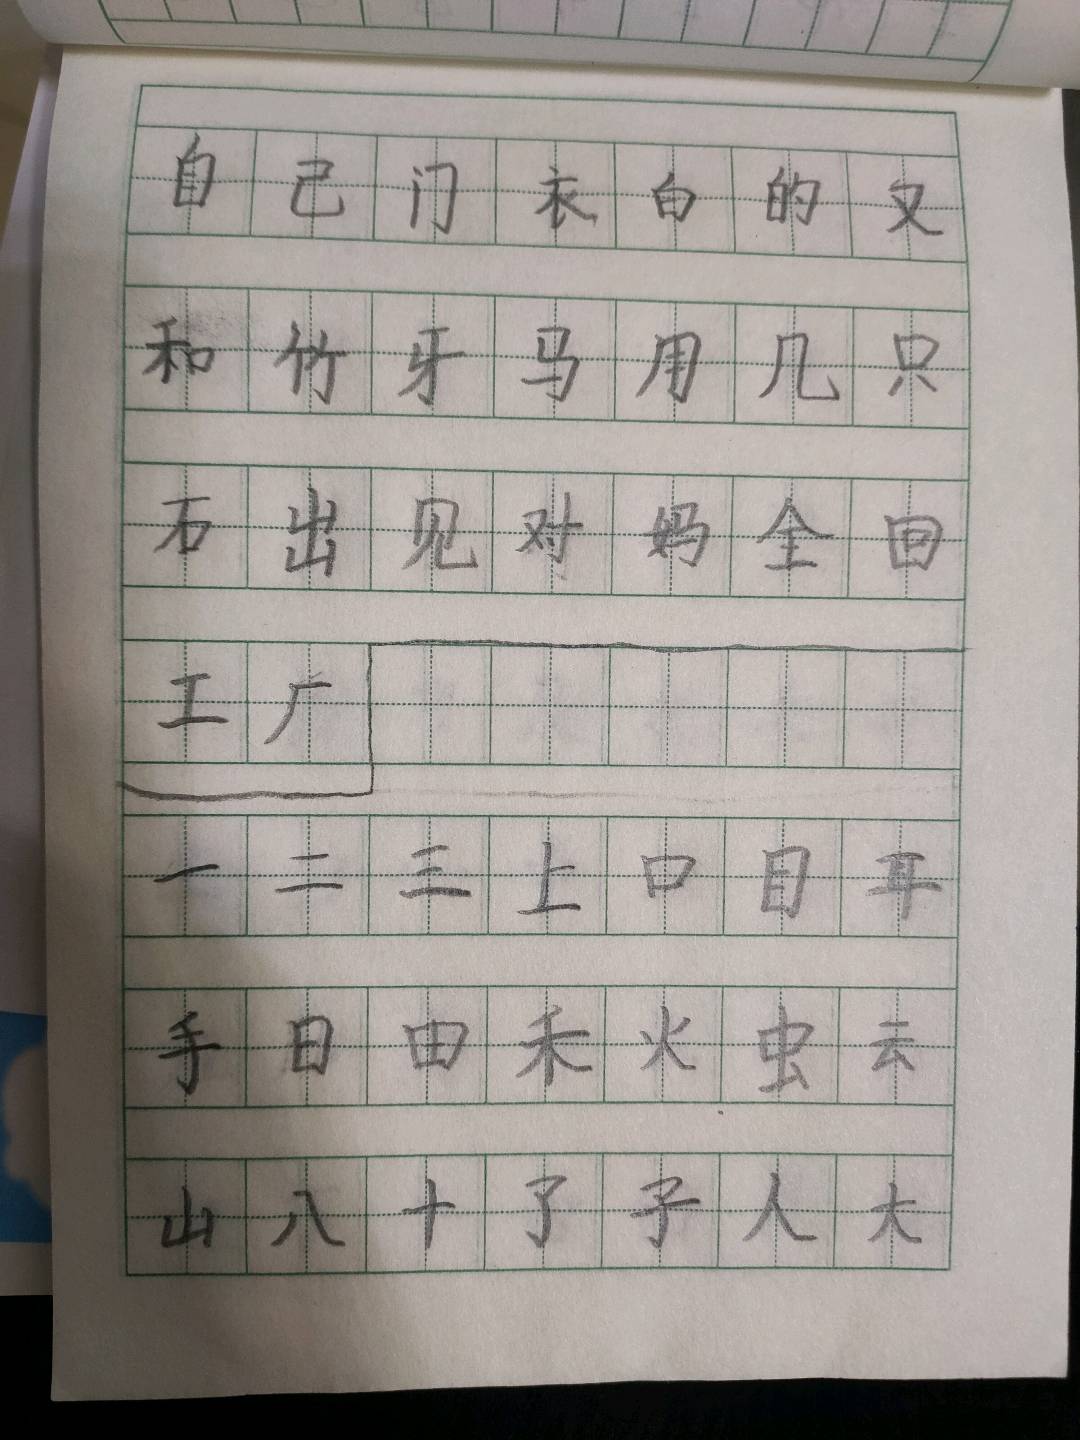 自己门衣白的又
和竹牙马用几只
石出见对妈全回
工厂
一二三上口目耳
手日田禾火虫云
山八十了子人大